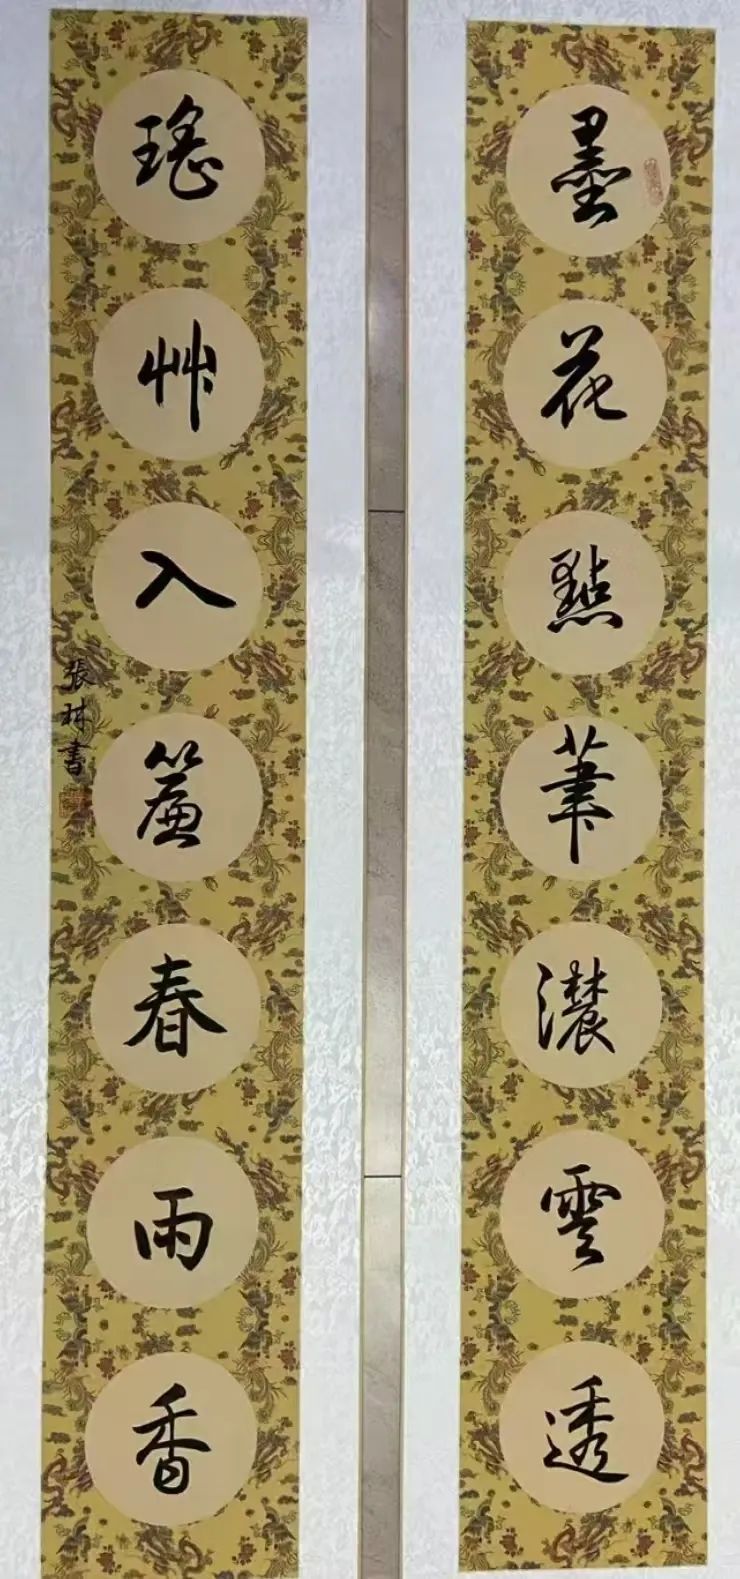 墨花點筆濃雲透
瑤艸入簾春雨香
張林書